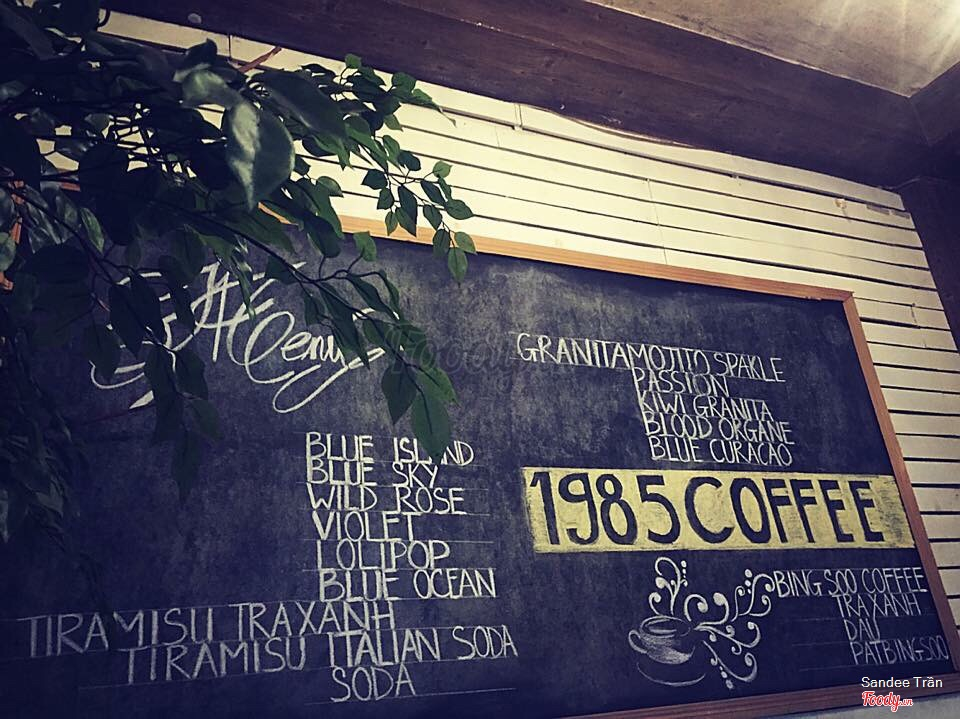 Menu
BLUE ISLAND
BLUE SKY
WILD ROSE
VIOLET
LOLIPOP
BLUE OCEAN
TIRAMISU TRAXANH
TIRAMISU ITALIAN SODA
SODA
GRANITAMOJITO SPAKLE
PASSION
KIWI GRANITA
BLOOD ORGANE
BLUE CURACAO
1985 COFFEE
BINGSOO COFFEE
TRAXANH
DAU
PATBINGSOO
Foody.vn
Sandee Trần
Foody.vn